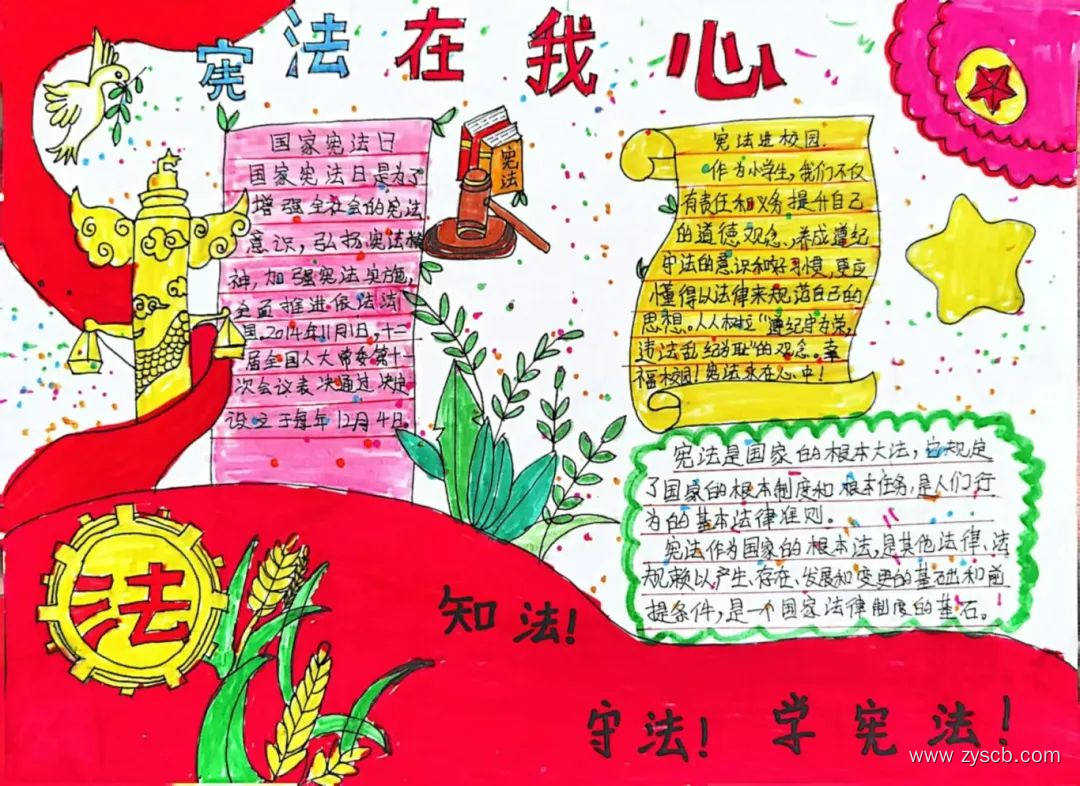 宪法在我心
国家宪法日
国家宪法日是为了
增强全社会的宪法
意识，弘扬宪法精
神，加强宪法实施，
全面推进依法治
国。2014年11月1日，十二
届全国人大常委第十一
次会议表决通过决定
设立于每年12月4日。
宪法
宪法进校园
作为小学生，我们不仅
有责任和义务提升自己
的道德观念，养成遵纪
守法的意识和好习惯，更应
懂得以法律来规范自己的
思想。人人树立"遵纪守为荣，
违法乱纪为耻"的观念。幸
福校园！宪法永在心中！
宪法是国家的根本大法，它规定
了国家的根本制度和根本任务，是人们行
为的基本法律准则。
宪法作为国家的根本法，是其他法律、法
规赖以产生、存在、发展和变更的基础和前
提条件，是一个国家法律制度的基石。
法
知法！
守法！学宪法！
www.zyscb.com